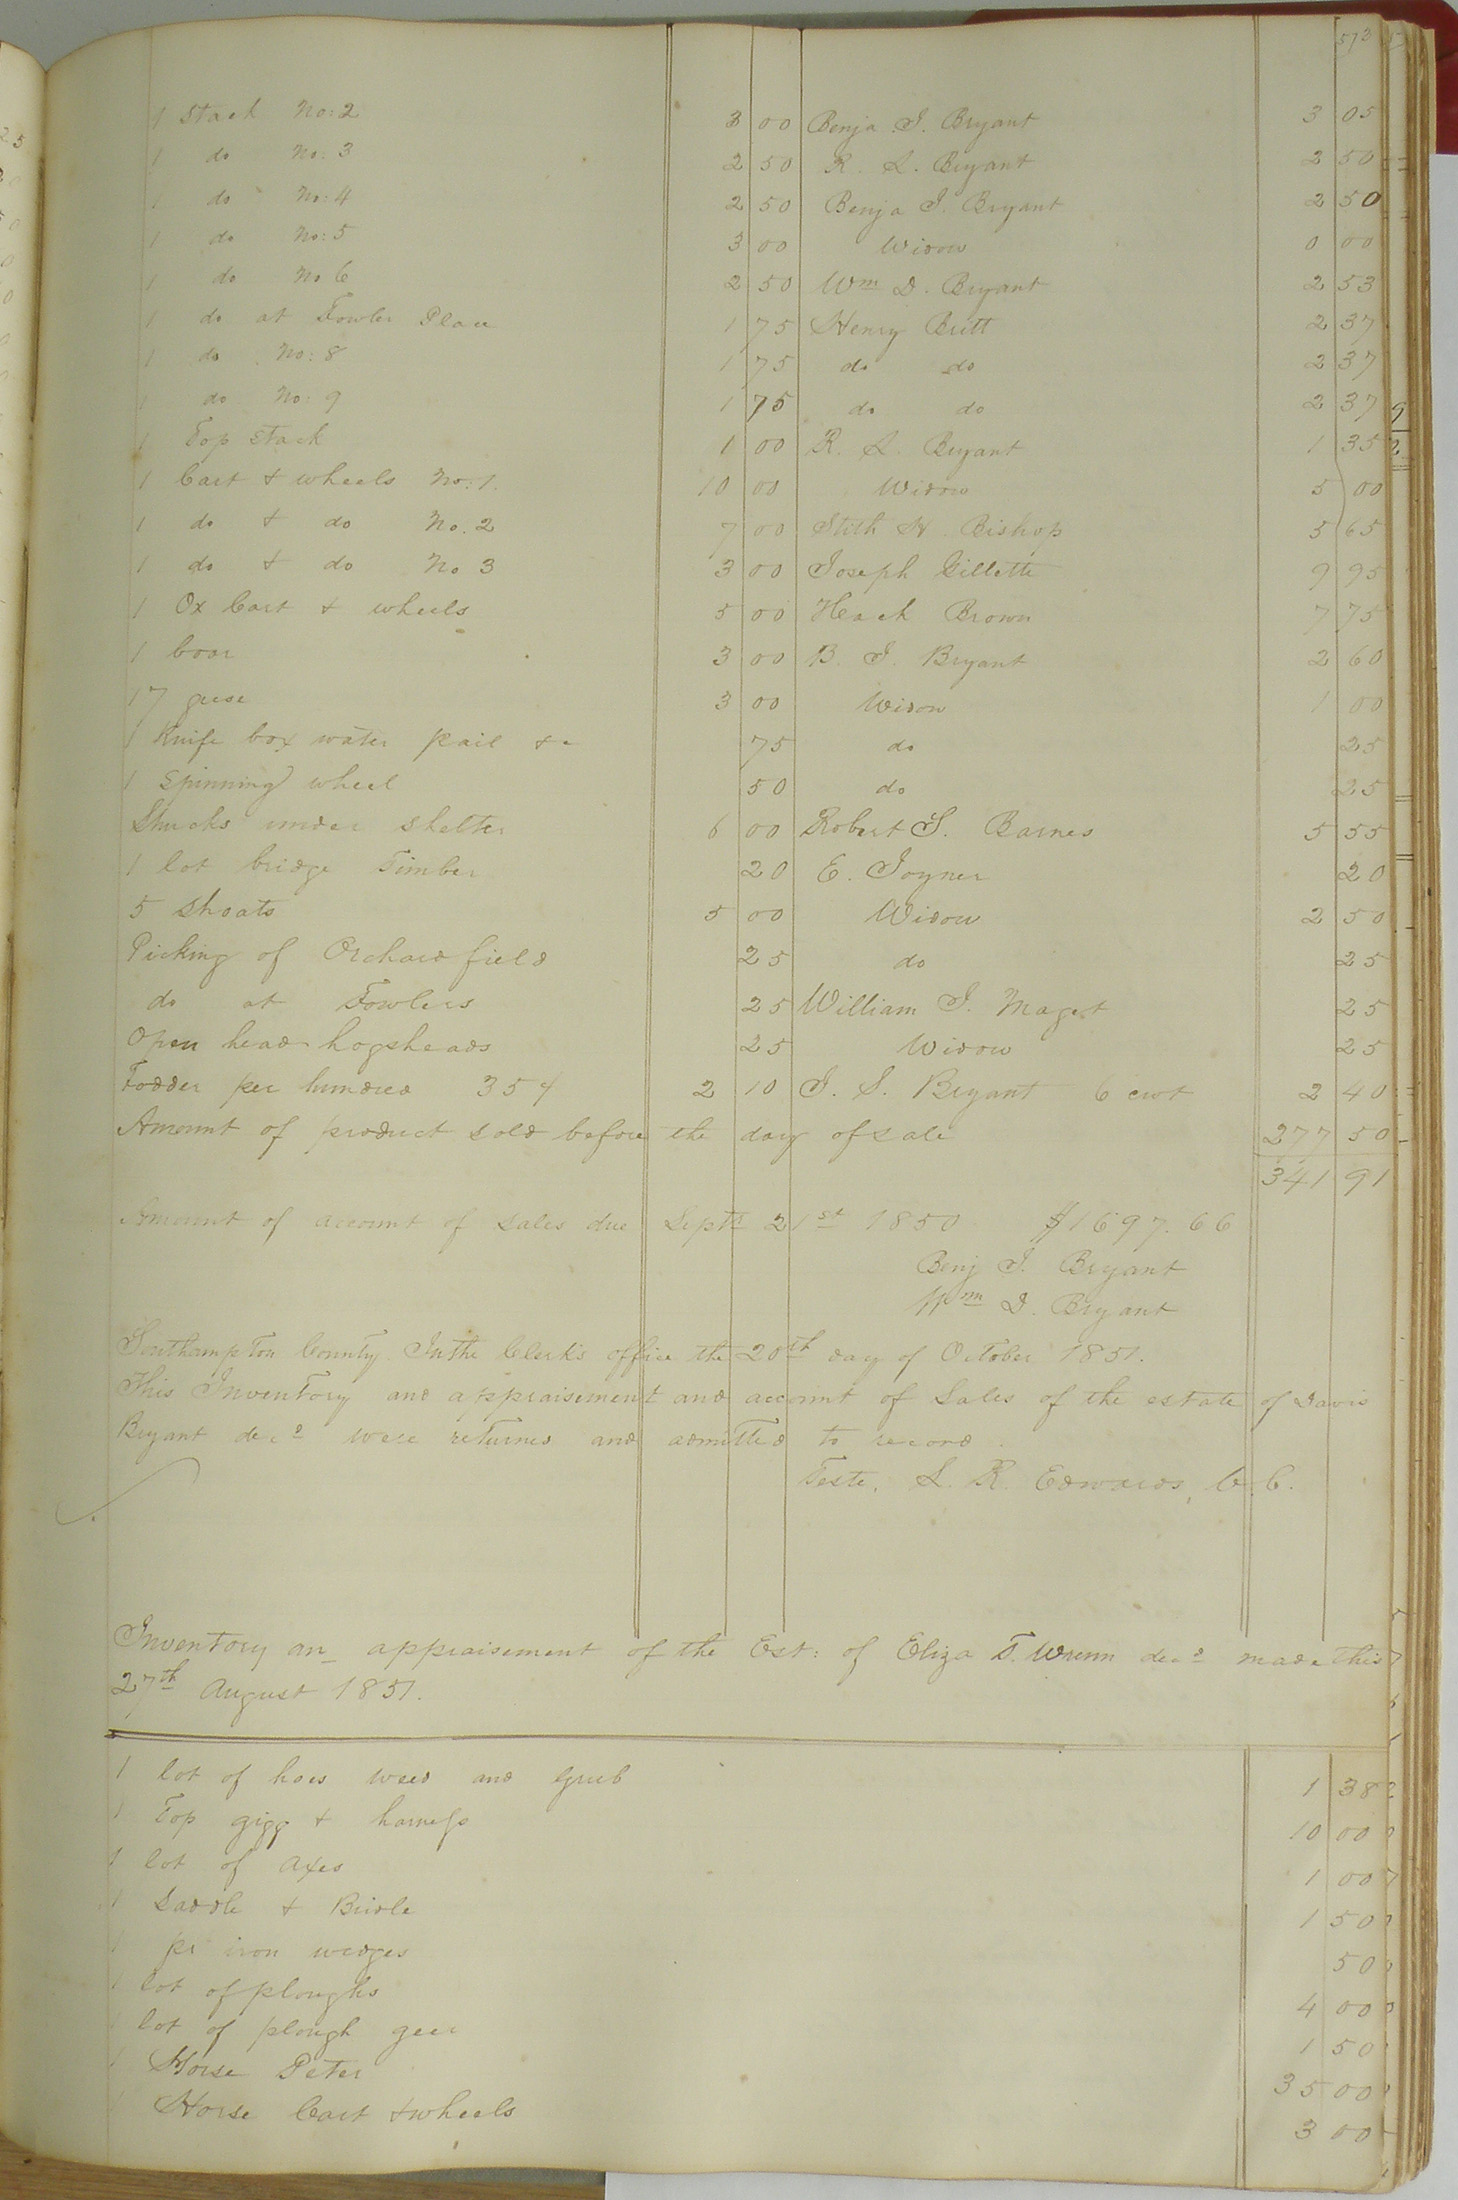 573
1 Stack No: 2 3 00 Benja J. Bryant 3 05
1 do No: 3 2 50 R. L. Bryant 2 50
1 do No: 4 2 50 Benja J. Bryant 2 50
1 do No: 5 3 00 Widow 0 00
1 do No 6 2 50 Wm D. Bryant 2 53
1 do at Fowler Place 1 75 Henry Britt 2 37
1 do No: 8 1 75 do do 2 37
1 do No: 9 1 75 do do 2 37
1 Top Stack 1 00 R. L. Bryant 1 35
1 Cart & wheels No: 1. 10 00 Widow 5 00
1 do & do No. 2 7 00 Stith H. Bishop 5 65
1 do & do No 3 3 00 Joseph Gillette 9 95
1 Ox Cart & wheels 5 00 Heach Brown 7 75
1 boar 3 00 B. J. Bryant 2 60
17 geese 3 00 Widow 1 00
1 Knife box water pail &c 75 do 25
1 Spinning wheel 50 do 25
Shucks under shelter 6 00 Robert S. Barnes 5 55
1 lot bridge Timber 20 E. Joyner 20
5 Shoats 5 00 Widow 2 50
Picking of Orchard field 25 do 25
do at Fowlers 25 William J. Maget 25
Open head hogsheads 25 Widow 25
Fodder per hundred 354 2 10 J. S. Bryant 6 cwt 2 40
Amount of product sold before the day of sale 277 50
341 91
Amount of account of sales due Septr 21st 1850 $1697.66
Benj J. Bryant
Wm D. Bryant
Southampton County In the Clerk's office the 20th day of October 1851.
This Inventory and appraisement and account of Sales of the estate of Davis
Bryant decd were returned and admitted to record.
Teste, L. R. Edwards, C. C.
Inventory an appraisement of the Est: of Eliza T. Wrenn decd made this
27th August 1851.
1 lot of hoes weed and Grub 1 38
1 Top gigg & harness 10 00
1 lot of axes 1 00
1 Saddle & Bridle 1 50
1 pr iron wedges 50
1 lot of ploughs 4 00
1 lot of plough geer 1 50
1 Horse Peter 35 00
1 Horse Cart & wheels 3 00